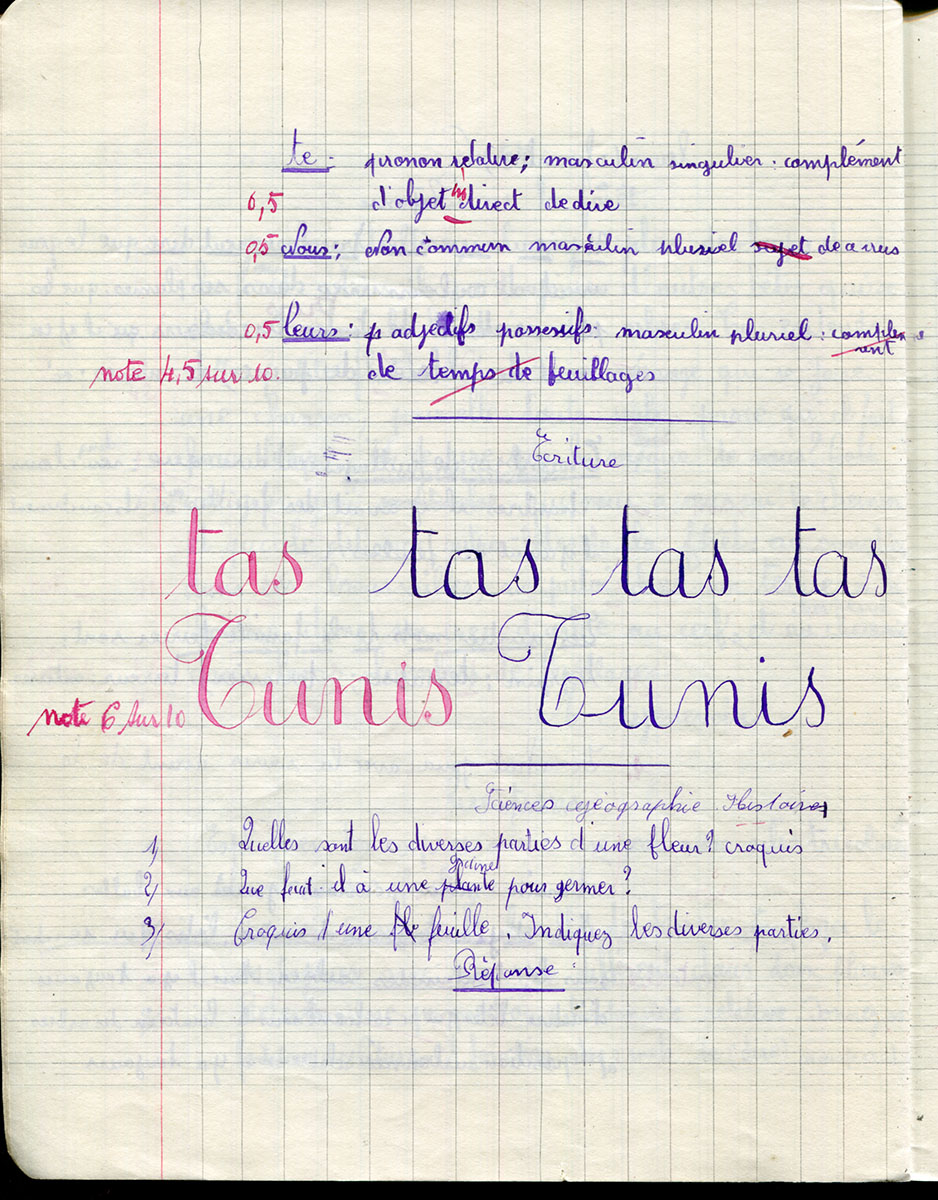 te : pronon relative; masculin singulier : complément
0,5 d'objet in direct de dire
0,5 Nous; Non commun masculin pluriel sujet de
0,5 leurs : p adjectifs possessifs masculin pluriel : complement
note 4,5 sur 10. de temps de feuillages
Ecriture
tas tas tas tas
Tunis Tunis
note 6 sur 10
Sciences géographie Histoire
1) Quelles sont les diverses parties d'une fleur? croquis
2) Que faut-il à une plante graine pour germer?
3) Croquis d'une feuille. Indiquez les diverses parties.
Réponse :